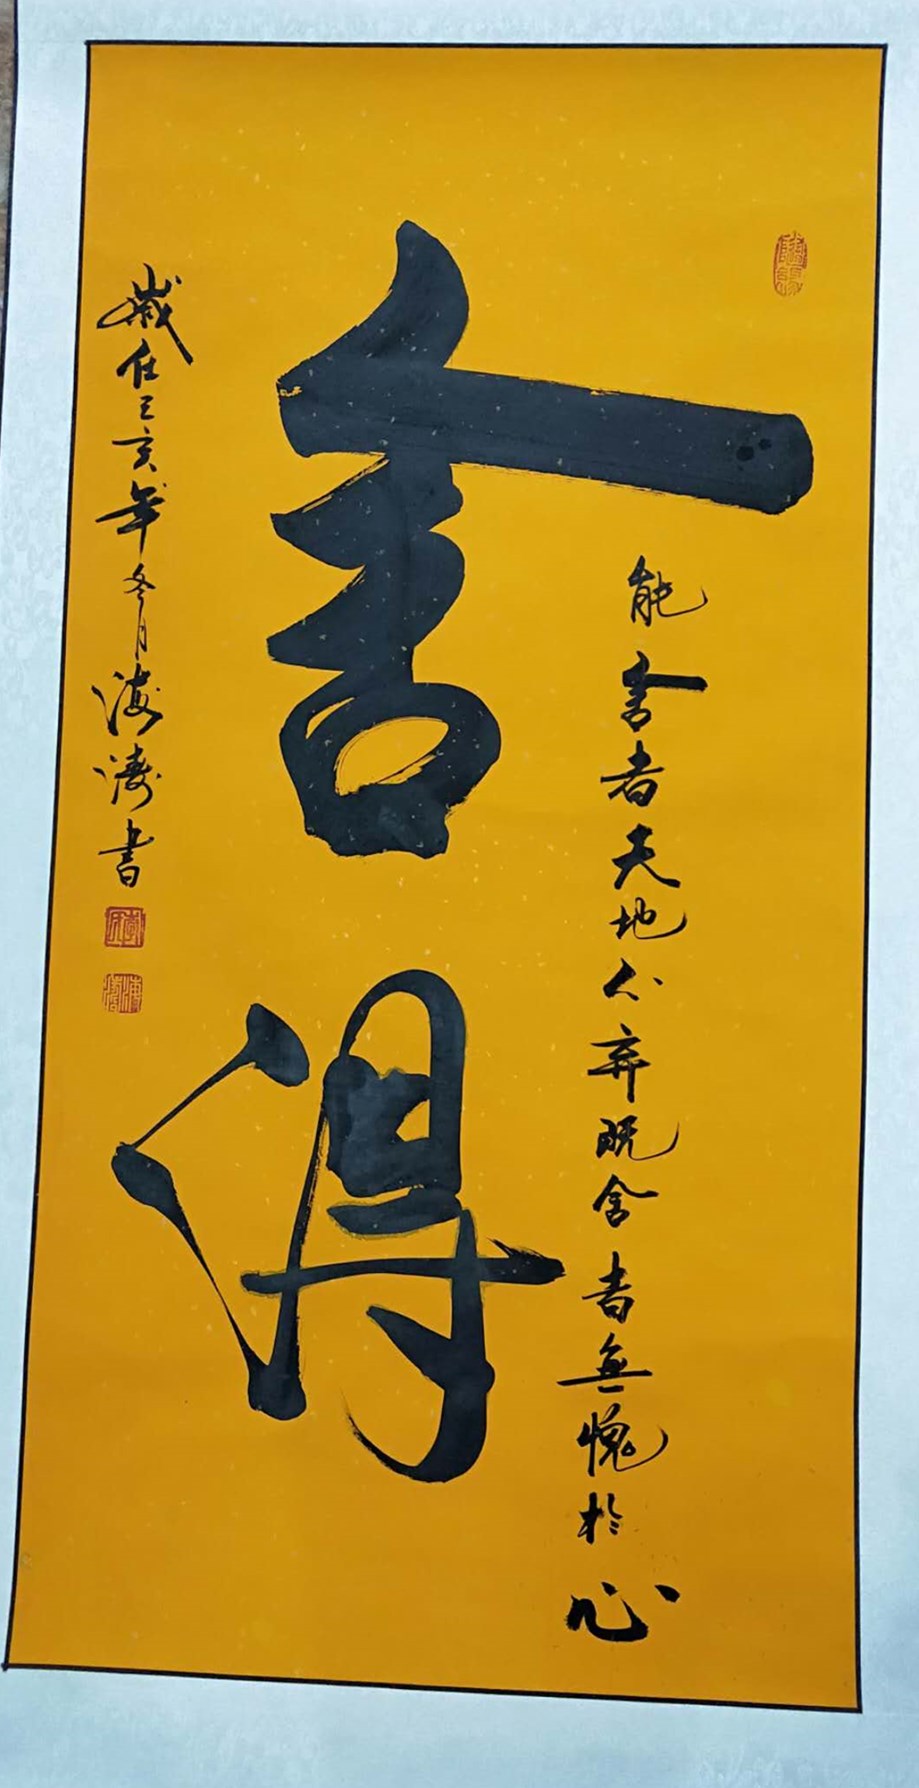 舍得
能舍者天地不弃既舍者無愧於心
歲在己亥年冬月海濤書